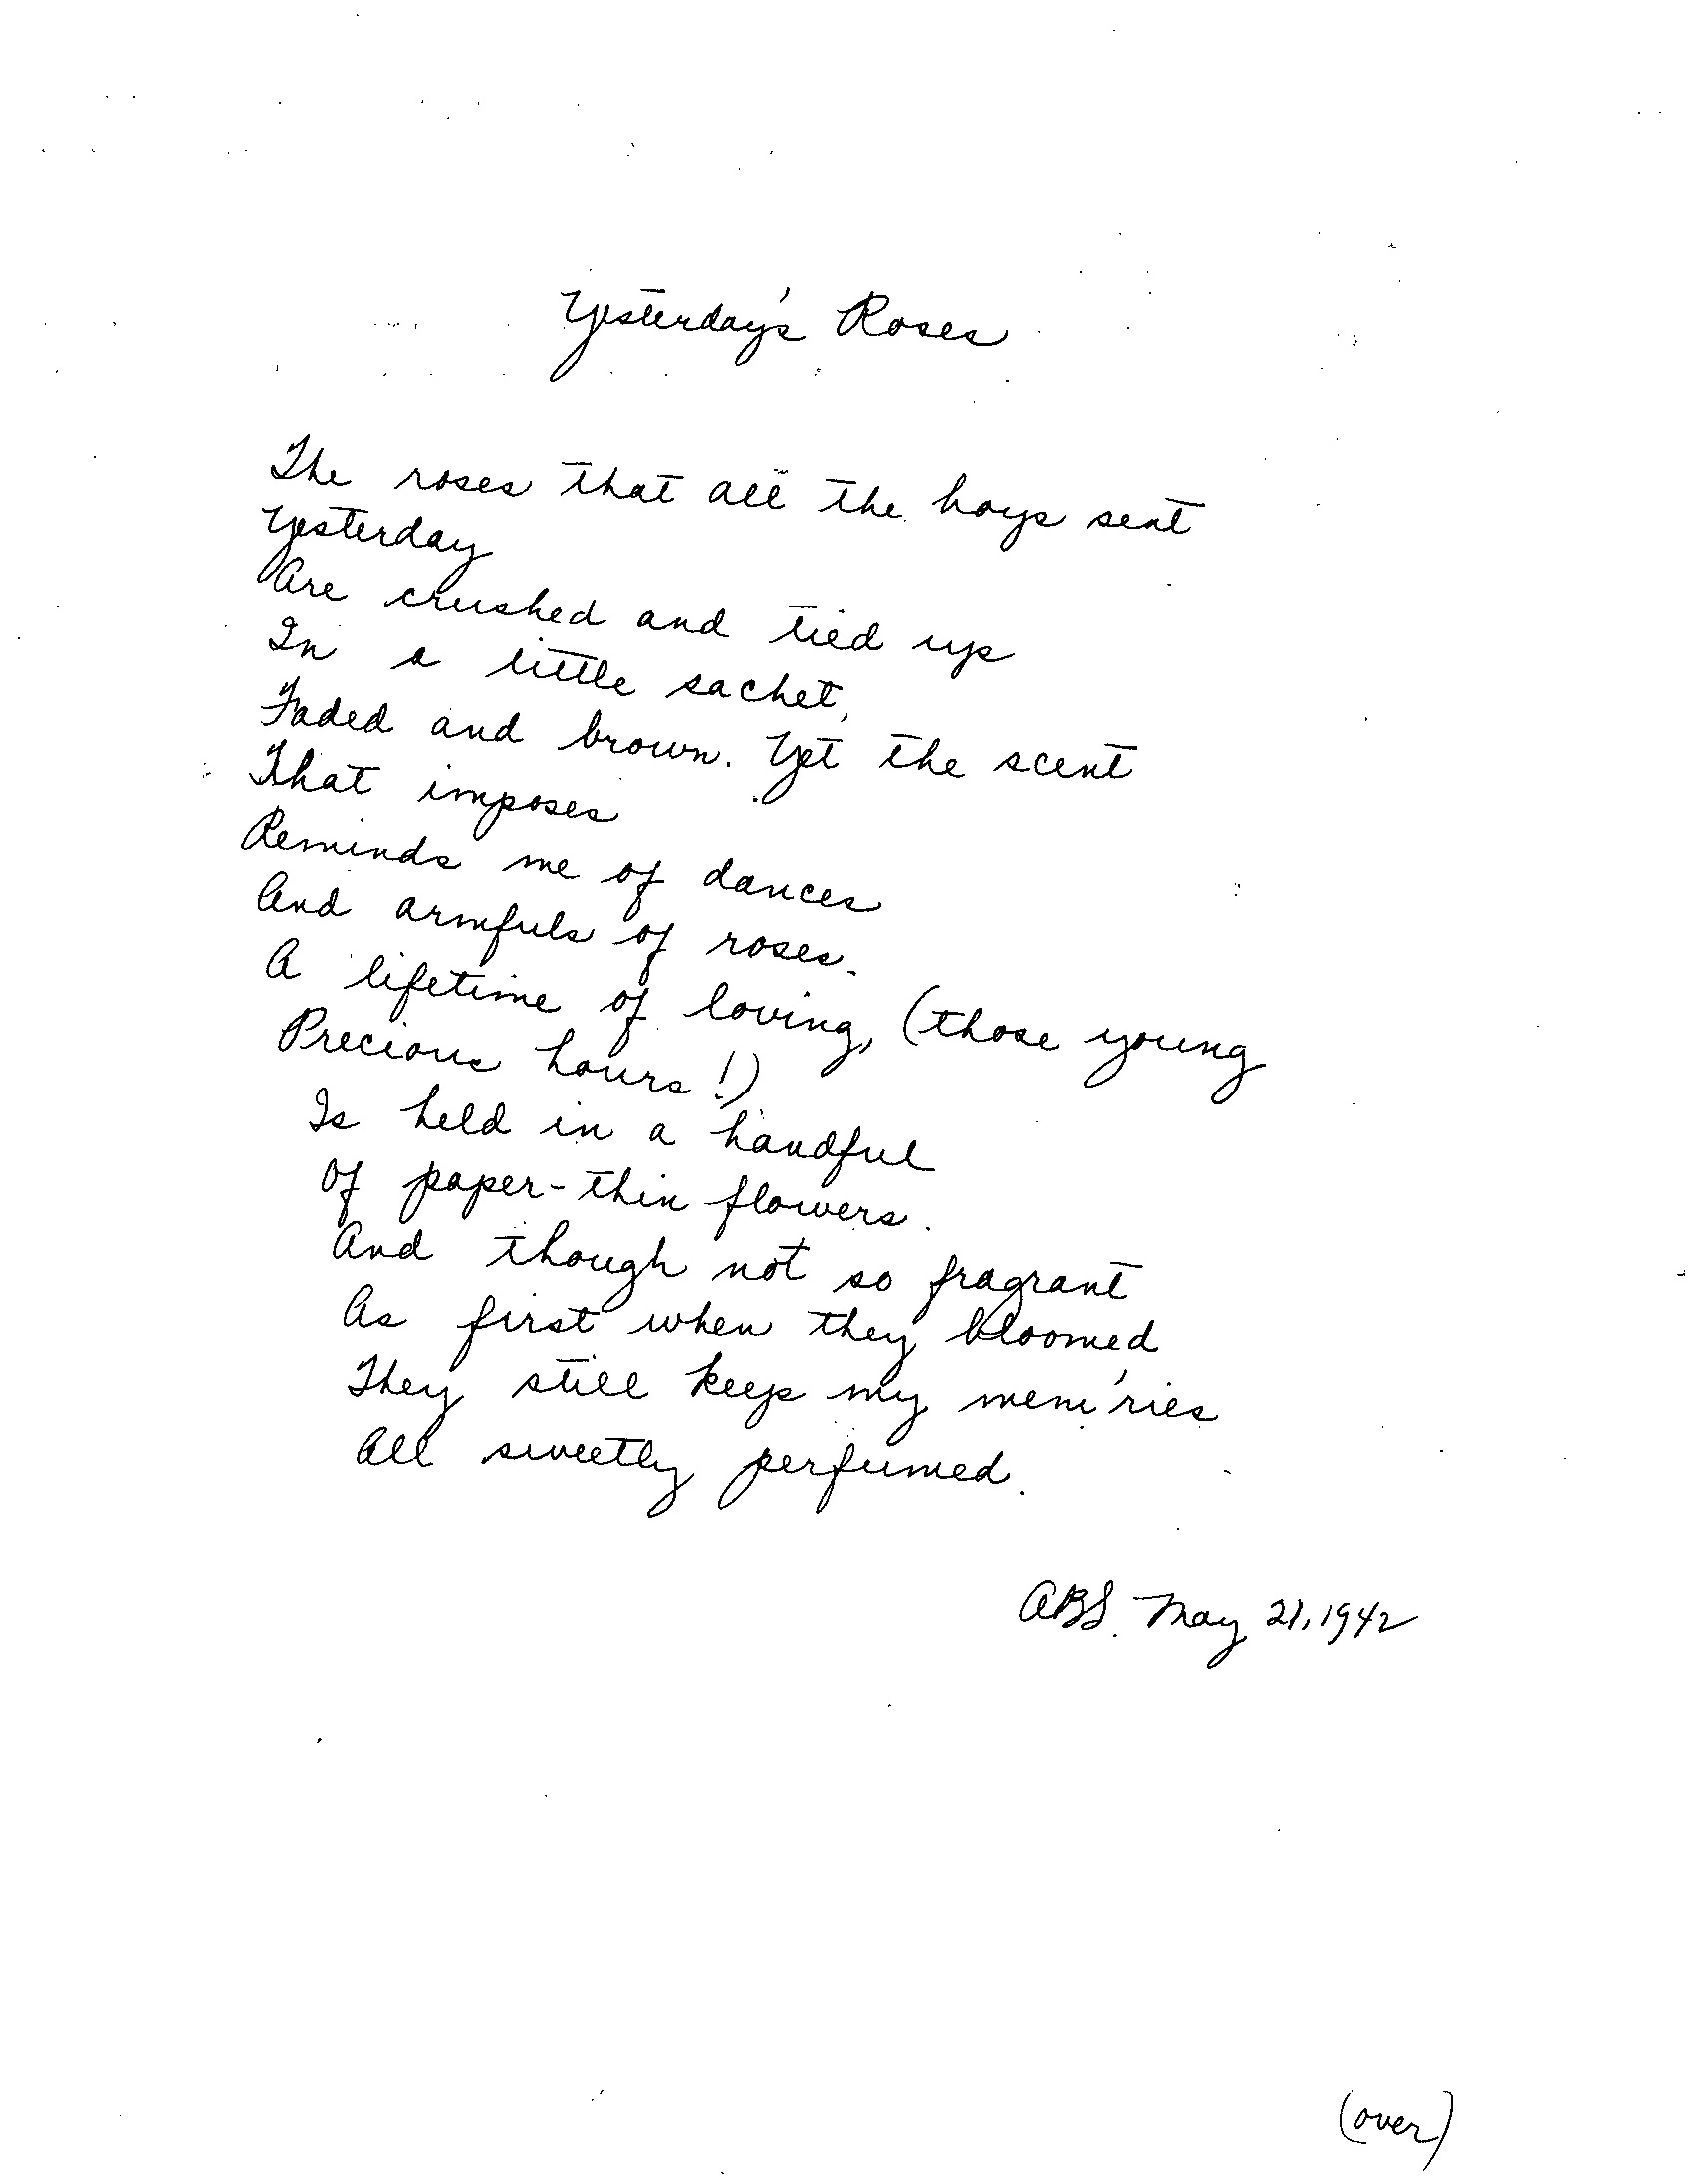 Yesterday's Roses
The roses that all the boys sent
Yesterday
Are crushed and tied up
In a little sachet,
Faded and brown. Yet the scent
That imposes
Reminds me of dances
And armfuls of roses.
A lifetime of loving, (those young
Precious hours!)
Is held in a handful
Of paper-thin flowers.
And though not so fragrant
As first when they bloomed
They still keep my mem'ries
All sweetly perfumed.
ABS. May 21, 1942
(over)